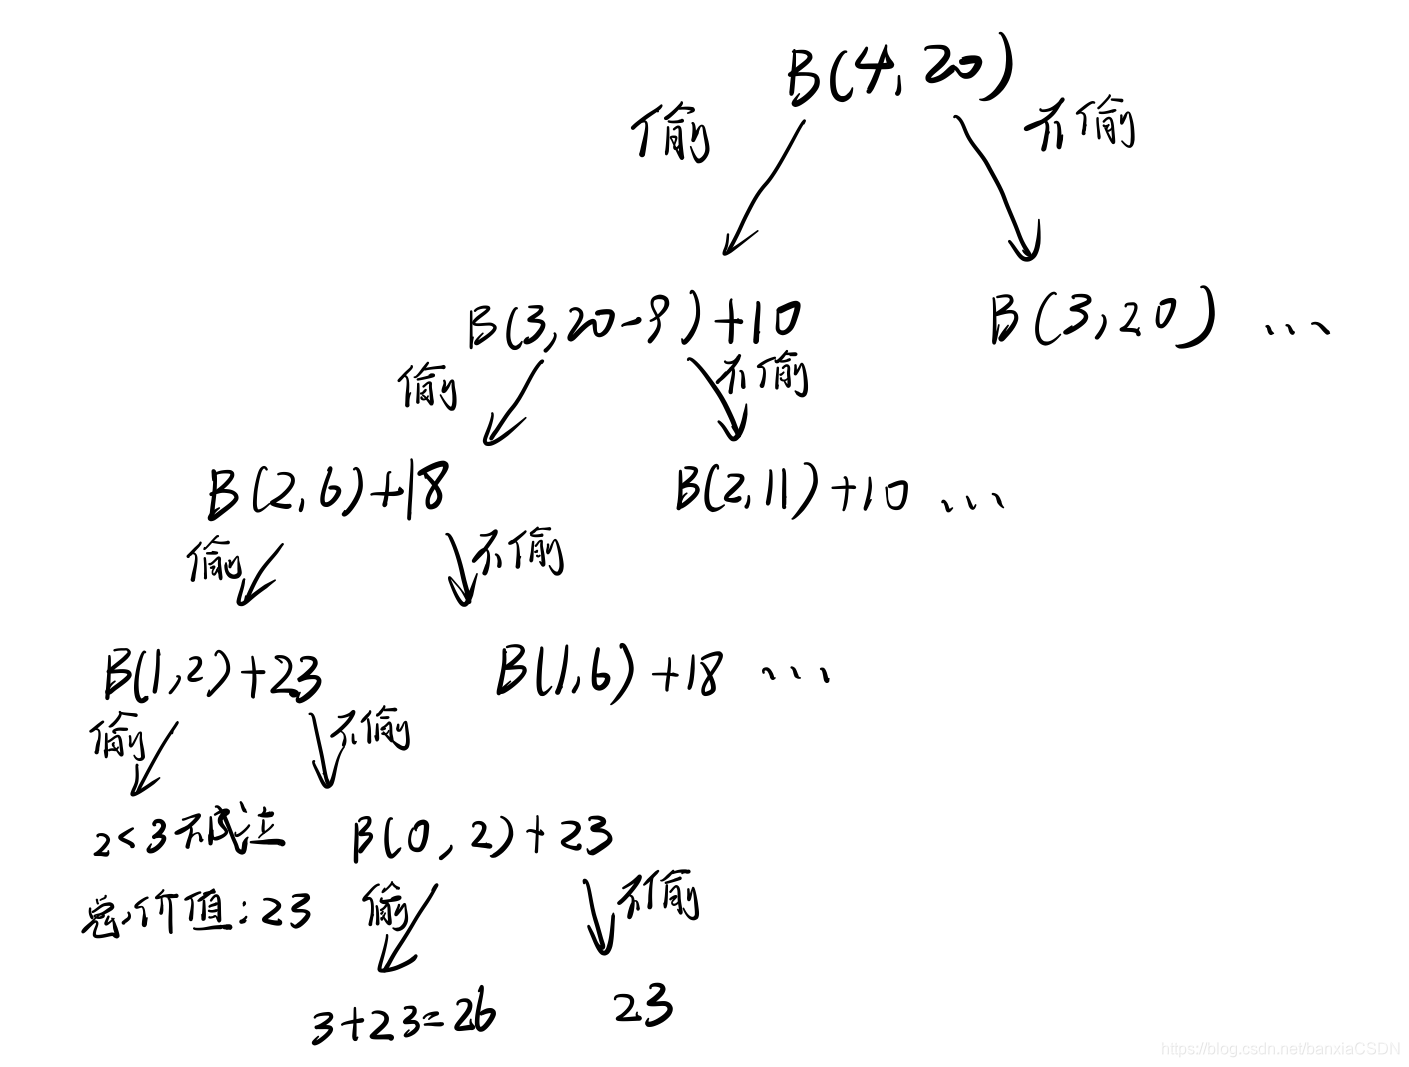 B(4,20)
偷 不偷
B(3,20-9)+10 B(3,20) ...
偷 不偷
B(2,6)+18 B(2,11)+10 ...
偷 不偷
B(1,2)+23 B(1,6)+18 ...
偷 不偷
2<3不成立 B(0,2)+23
总价值:23 偷 不偷
3+23=26 23
https://blog.csdn.net/banxiaCSDN